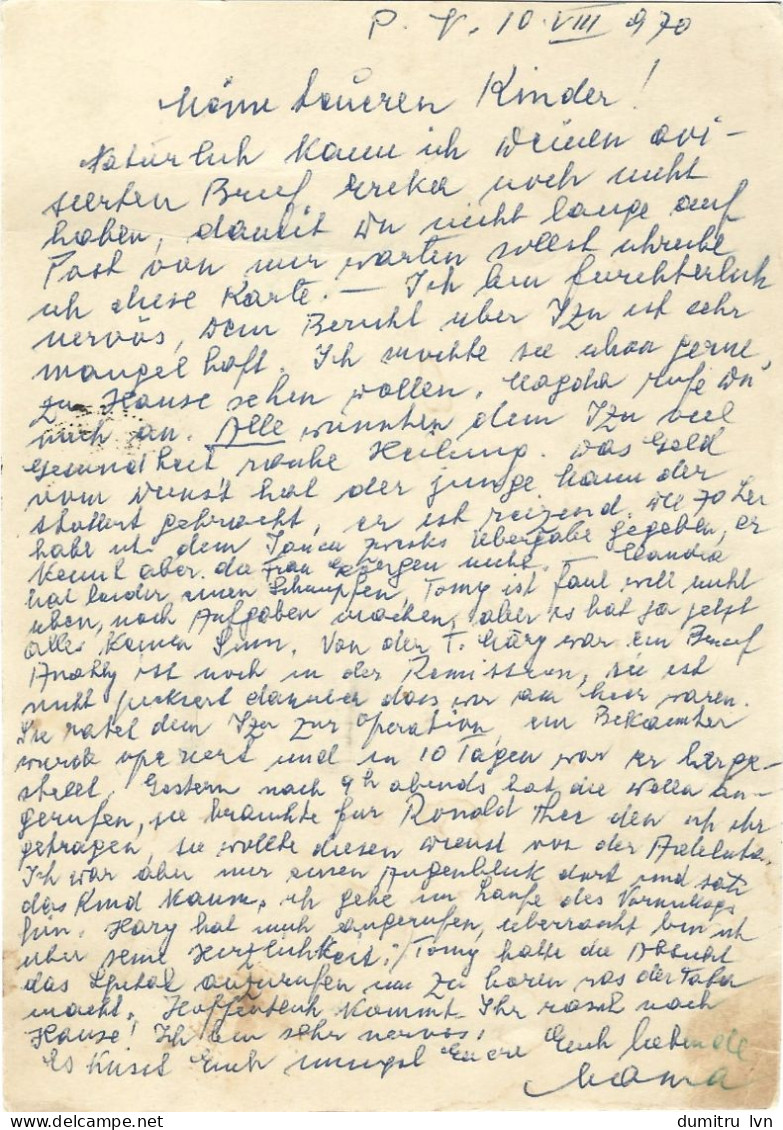 P. N. 10. VIII 970
Meine teueren Kinder!
Natürlich kann ich deinen avi-
sierten Brief noch nicht
haben, damit Du nicht lange auf
Post von mir warten sollst schreibe
ich diese Karte. — Ich bin fürchterlich
nervös, Dein Bericht über Izu ist sehr
mangelhaft. Ich möchte sie schon gerne,
zu Hause sehen wollen. Magda rufe Du
mich an. Alle wünschen dem Izu viel
Gesundheit Heilung. Das Geld
vom hat der junge Mann der
gebracht, er ist reizend. Die 70 Lei
habe ich dem zwecks Übergabe gegeben, er
kennt aber die Frau nicht. — Claudia
hat leider einen Schnupfen, Tomy ist faul will nicht
üben, noch Aufgaben machen, aber es hat ja jetzt
alles keinen Sinn. Von der T. Mary war ein Brief
ist noch in der Remission, sie ist
nicht darüber dass wir am Meer waren.
Sie ratet dem Izu zur Operation, ein Bekannter
wurde operiert und in 10 Tagen war er herge-
stellt. Gestern nach 9h abends hat die Wella an-
gerufen, sie brauchte für Ronald Tee den ich ihr
getragen, sie wollte diesen von der
Ich war aber nur einen Augenblick dort und sah
das Kind kaum, ich gehe im Laufe des Vormittags
hin. Hary hat mich angerufen, überrascht bin ich
über seine Herzlichkeit. Tomy hatte die Absicht
das Spital anzurufen um zu hören was der Tata
macht. Hoffentlich kommt Ihr rasch nach
Hause! Ich bin sehr nervös!
Es küsst Euch innigst Euere Euch liebende
Mama
dumitru lvn